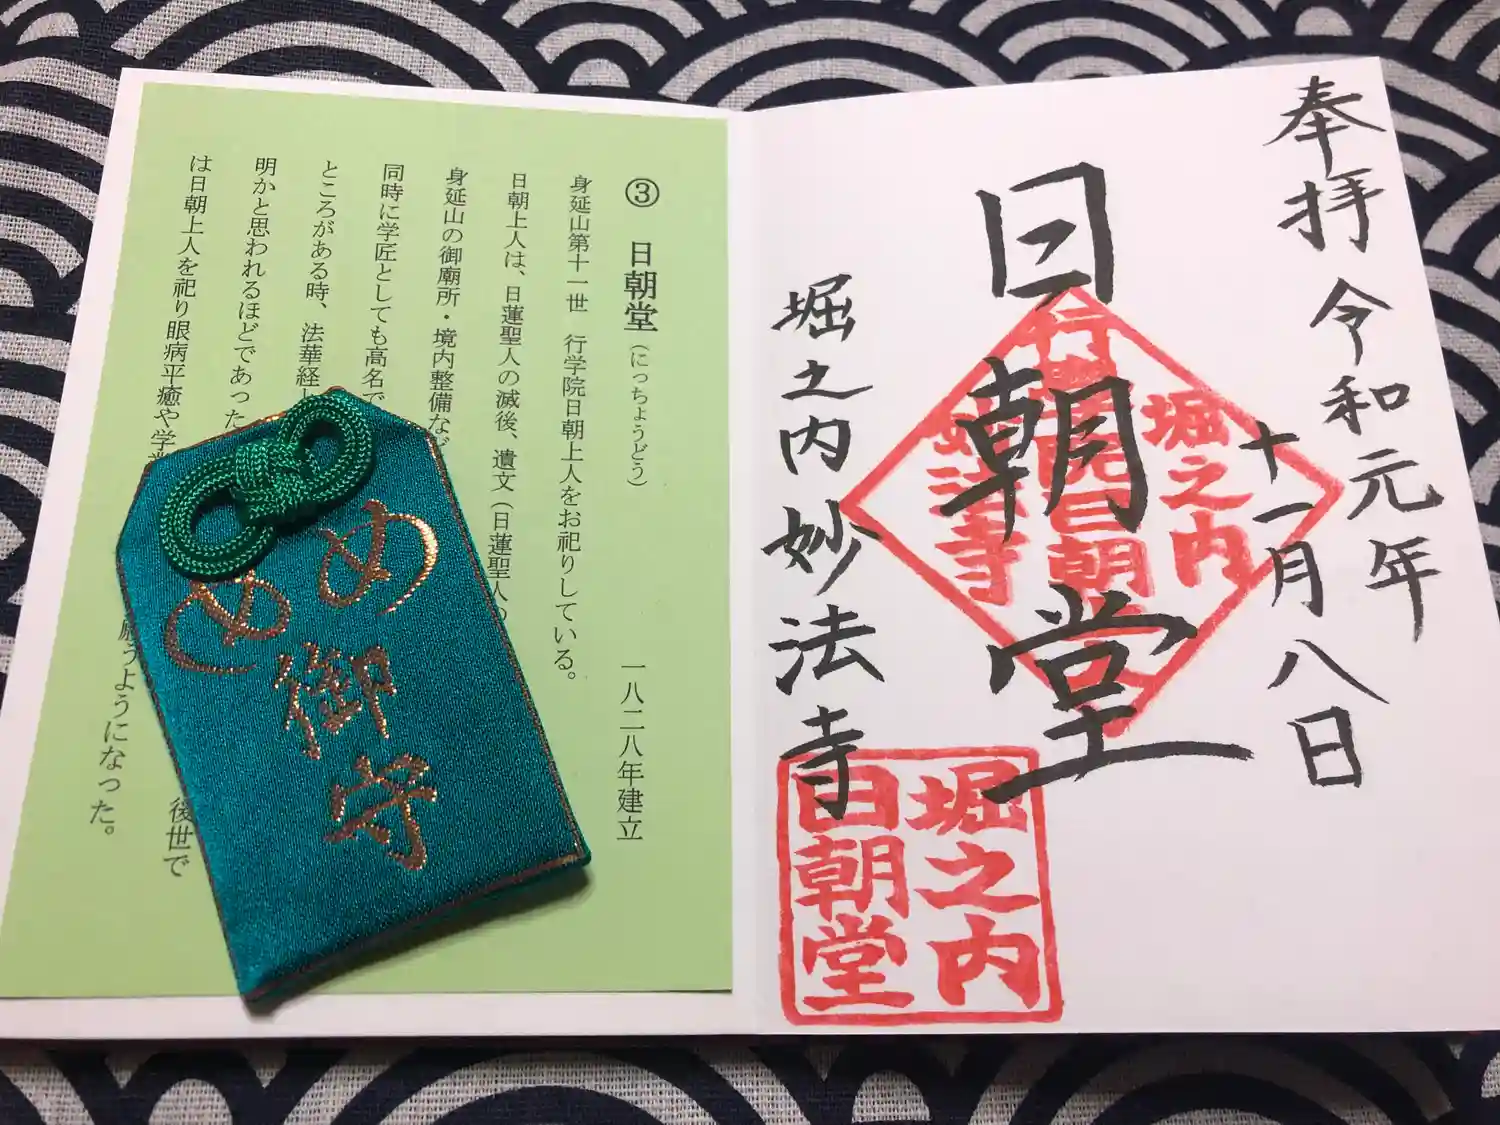 奉拝 令和元年
十一月八日
日朝堂
堀之内妙法寺
堀之内
妙法寺
堀之内
日朝堂
③ 日朝堂（にっちょうどう）
一八二八年建立
身延山第十一世 行学院日朝上人をお祀りしている。
日朝上人は、日蓮聖人の滅後、遺文（日蓮聖人の
身延山の御廟所・境内整備など
同時に学匠としても高名で
ところがある時、法華経
明かと思われるほどであった
後世で
は日朝上人を祀り眼病平癒や学業
願うようになった。
めめ
御守